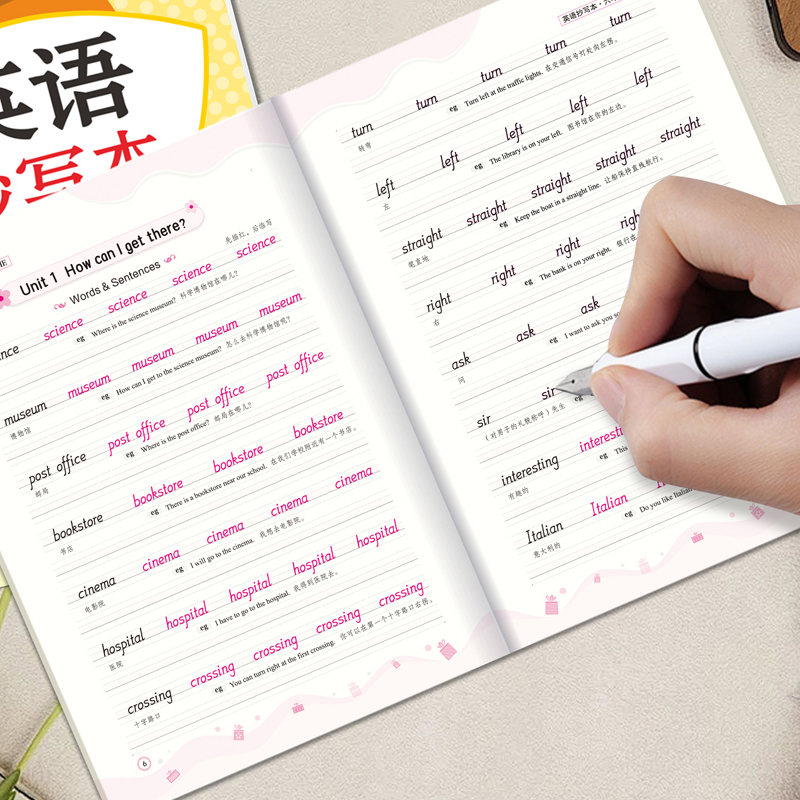 英语
抄写本
Unit 1 How can I get there?
Words & Sentences
先描红，后临写
science science science science
eg Where is the science museum? 科学博物馆在哪儿？
museum museum museum museum museum
博物馆 eg How can I get to the science museum? 怎么去科学博物馆呢？
post office post office post office post office
邮局 eg Where is the post office? 邮局在哪儿？
bookstore bookstore bookstore bookstore
书店 eg There is a bookstore near our school. 在我们学校附近有一个书店。
cinema cinema cinema cinema cinema
电影院 eg I will go to the cinema. 我想去电影院。
hospital hospital hospital hospital hospital
医院 eg I have to go to the hospital. 我得到医院去。
crossing crossing crossing crossing crossing
十字路口 eg You can turn right at the first crossing. 你可以在第一个十字路口右拐。
6
英语抄写本
turn turn turn turn turn
转弯 eg Turn left at the traffic lights. 在交通信号灯处向左拐。
left left left left left
左 eg The library is on your left. 图书馆在你的左边。
straight straight straight straight straight
笔直地 eg Keep the boat in a straight line. 让船保持直线航行。
right right right right
右 eg The bank is on your right. 银行在
ask ask ask
问 eg I want to ask you
sir sir
（对男子的礼貌称呼）先生 eg
interesting
有趣的 eg This
Italian Italian
意大利的 eg Do you like Italian